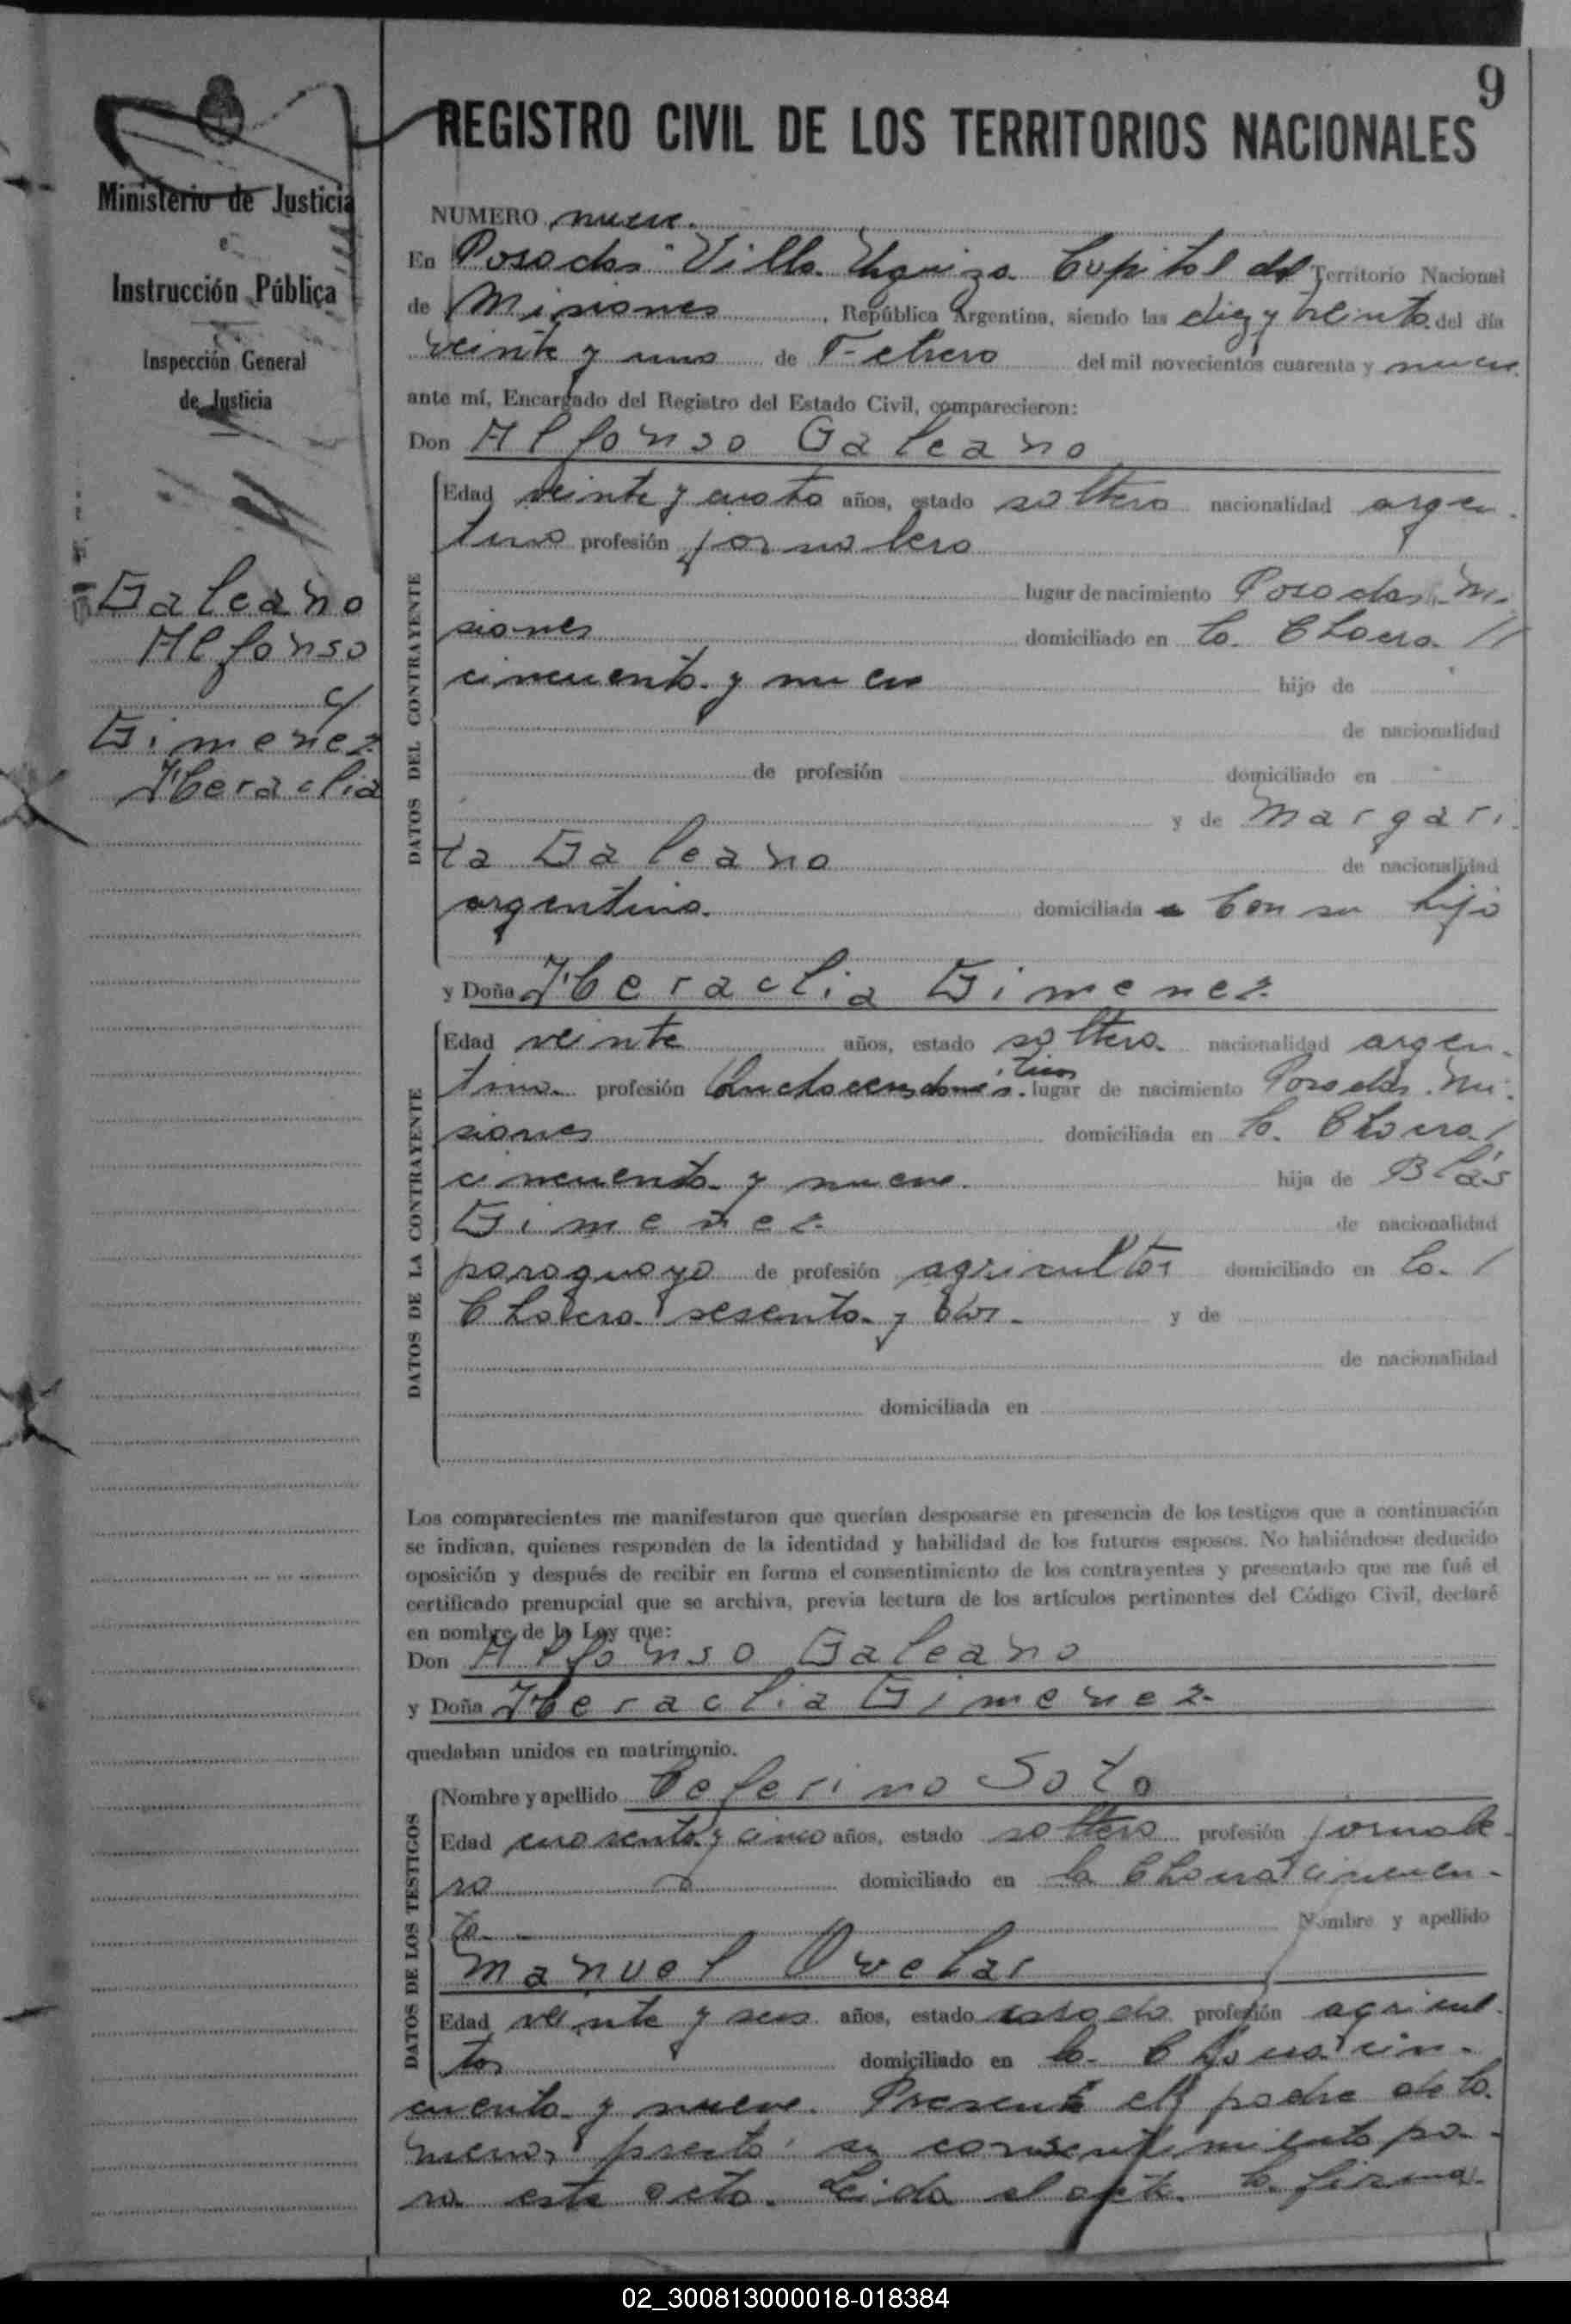 9
REGISTRO CIVIL DE LOS TERRITORIOS NACIONALES
Ministerio de Justicia
e
Instrucción Pública
Inspección General
de Justicia
Galeano
Alfonso
y
Gimenez
Heraclia
NUMERO nueve.
En Posadas Villa Urquiza Capital del Territorio Nacional
de Misiones, República Argentina, siendo las diez y treinta del día
veinte y uno de Febrero del mil novecientos cuarenta y nueve
ante mí, Encargado del Registro del Estado Civil, comparecieron:
Don Alfonso Galeano
DATOS DEL CONTRAYENTE
Edad veinte y cuatro años, estado soltero nacionalidad argen-
tino profesión jornalero
lugar de nacimiento Posadas Mi-
siones domiciliado en la Chacra
cincuenta y nueve hijo de
de nacionalidad
de profesión domiciliado en
y de Margari-
ta Galeano de nacionalidad
argentina. domiciliada con su hijo
y Doña Heraclia Gimenez
DATOS DE LA CONTRAYENTE
Edad veinte años, estado soltera nacionalidad argen-
tina profesión lugar de nacimiento Posadas Mi-
siones domiciliada en la Chacra
cincuenta y nueve. hija de Blás
Gimenez de nacionalidad
paraguayo de profesión agricultor domiciliado en la
Chacra sesenta y dos. y de
de nacionalidad
domiciliada en
Los comparecientes me manifestaron que querían desposarse en presencia de los testigos que a continuación
se indican, quienes responden de la identidad y habilidad de los futuros esposos. No habiéndose deducido
oposición y después de recibir en forma el consentimiento de los contrayentes y presentado que me fué el
certificado prenupcial que se archiva, previa lectura de los artículos pertinentes del Código Civil, declaré
en nombre de la Ley que:
Don Alfonso Galeano
y Doña Heraclia Gimenez
quedaban unidos en matrimonio.
DATOS DE LOS TESTIGOS
Nombre y apellido Ceferino Soto
Edad cuarenta y cinco años, estado soltero profesión jornale-
ro domiciliado en la Chacra cincuen-
ta Nombre y apellido
Manuel Ovelar
Edad veinte y seis años, estado casado profesión agricul-
tor domiciliado en la Chacra cin-
cuenta y nueve. Presente el padre de la
menor prestó su consentimiento pa-
ra este acto. Leida el acta la firma
02_300813000018-018384